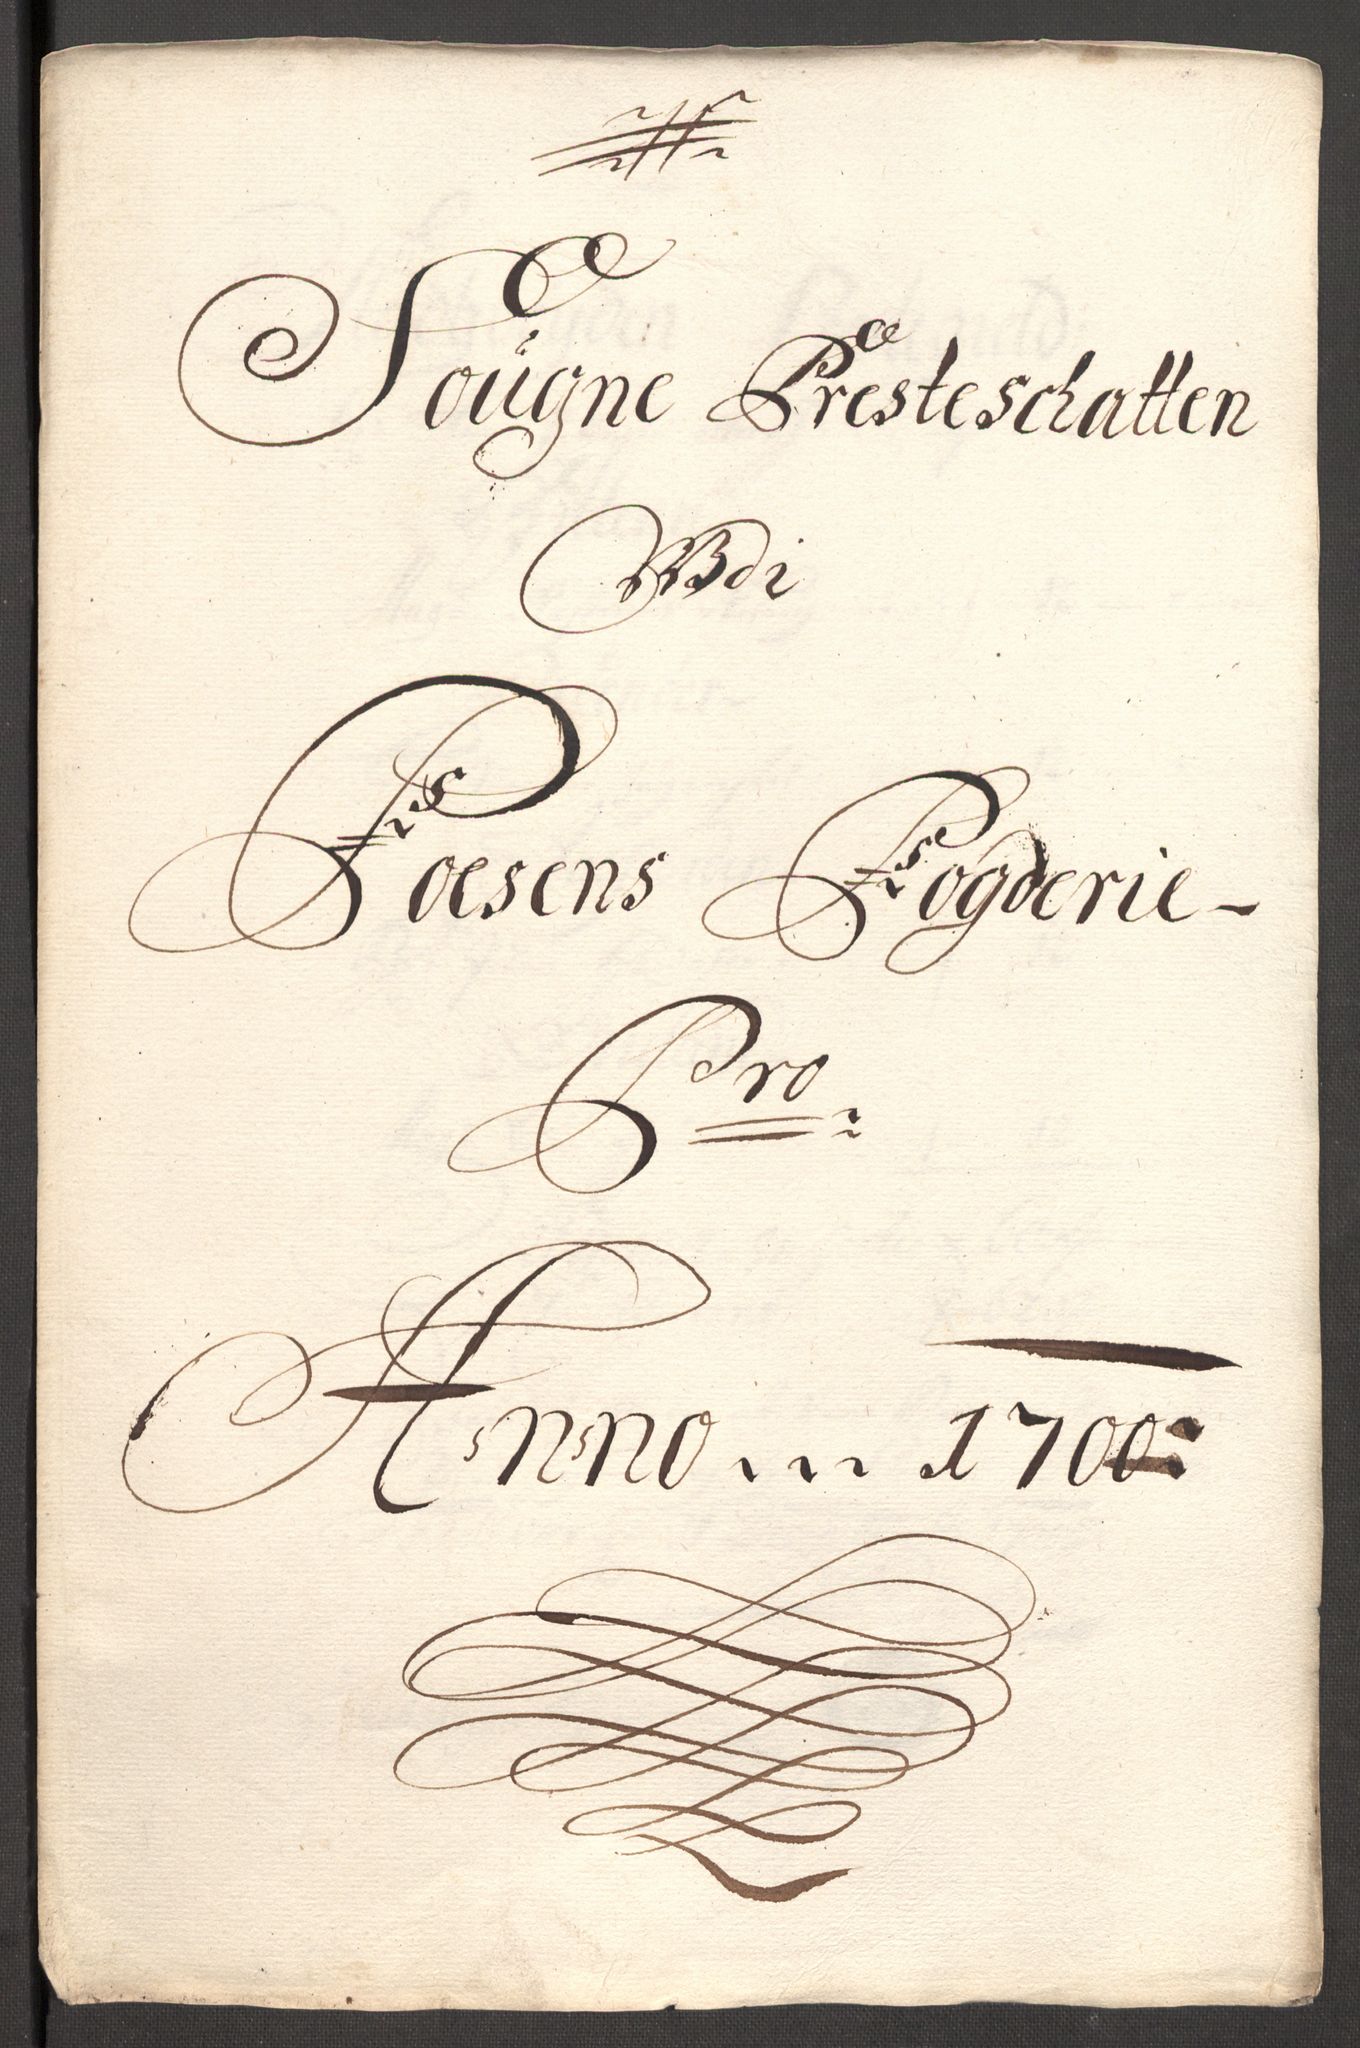 Sougne Presteschatten
Udi
Foesens Fogderie
Pro
Anno 1700